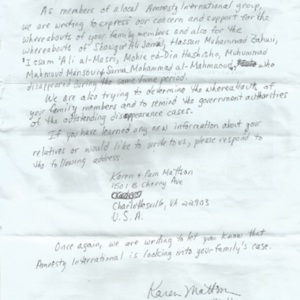 As members of a local Amnesty International group,
we are writing to express our concern and support for the
whereabouts of your family members and also for the
whereabouts of Hassan Mohammed
'Issam 'Ali al-Masri, Mohie ed-Din Hashisho, Muhammad
Mahmoud Mansour, Mohammad al-Mahmaoud, who
disappeared during the same time period.
We are also trying to determine the whereabouts of
your family members and to remind the government authorities
of the outstanding disappearance cases.
If you have learned any new information about your
relatives or would like to write to us, please respond to
the following address
Karen + Pem Mattson
1501 B Cherry Ave
Charlottesville, VA 22903
U.S.A.
Once again, we are writing to let you know that
Amnesty International is looking into your family's case.
Karen Mattson